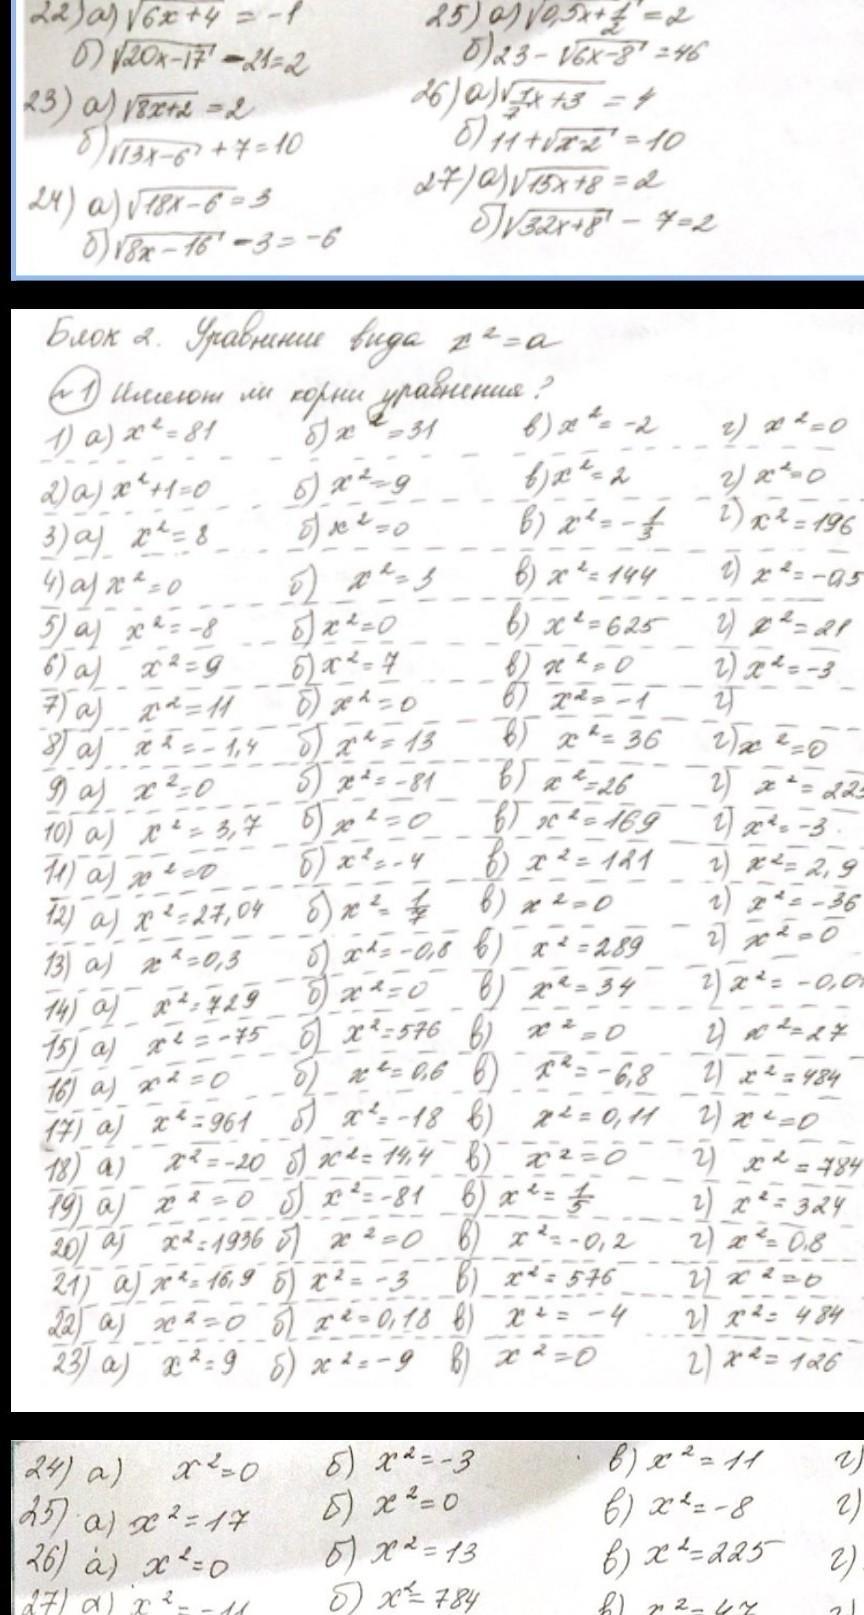 22) а) √6x+4 = -1 25) а) √0,5x+1/2 = 2
б) √20x-17 - 21=2 б) 23 - √6x-8 = 46
23) а) √8x+2 = 2 26) а) √1/7x+3 = 4
б) √13x-6 + 7=10 б) 11+√x-2 = 10
24) а) √18x-6 = 3 27) а) √15x+8 = 2
б) √8x-16 - 3 = -6 б) √32x+8 - 7=2
Блок 2. Уравнение вида x²=a
~1) Имеют ли корни уравнения?
1) а) x²=81 б) x²=31 в) x²=-2 г) x²=0
2) а) x²+1=0 б) x²=9 в) x²=2 г) x²=0
3) а) x²=8 б) x²=0 в) x²=-1/3 г) x²=196
4) а) x²=0 б) x²=3 в) x²=144 г) x²=-0,5
5) а) x²=-8 б) x²=0 в) x²=625 г) x²=21
6) а) x²=9 б) x²=7 в) x²=0 г) x²=-3
7) а) x²=11 б) x²=0 в) x²=-1 г)
8) а) x²=-1,4 б) x²=13 в) x²=36 г) x²=0
9) а) x²=0 б) x²=-81 в) x²=26 г) x²=225
10) а) x²=3,7 б) x²=0 в) x²=169 г) x²=-3
11) а) x²=0 б) x²=-4 в) x²=121 г) x²=2,9
12) а) x²=27,04 б) x²=1/7 в) x²=0 г) x²=-36
13) а) x²=0,3 б) x²=-0,8 в) x²=289 г) x²=0
14) а) x²=729 б) x²=0 в) x²=34 г) x²=-0,0
15) а) x²=-75 б) x²=576 в) x²=0 г) x²=27
16) а) x²=0 б) x²=0,6 в) x²=-6,8 г) x²=484
17) а) x²=961 б) x²=-18 в) x²=0,11 г) x²=0
18) а) x²=-20 б) x²=14,4 в) x²=0 г) x²=784
19) а) x²=0 б) x²=-81 в) x²=1/5 г) x²=324
20) а) x²=1936 б) x²=0 в) x²=-0,2 г) x²=0,8
21) а) x²=16,9 б) x²=-3 в) x²=576 г) x²=0
22) а) x²=0 б) x²=0,18 в) x²=-4 г) x²=484
23) а) x²=9 б) x²=-9 в) x²=0 г) x²=126
24) а) x²=0 б) x²=-3 в) x²=11 г)
25) а) x²=17 б) x²=0 в) x²=-8 г)
26) а) x²=0 б) x²=13 в) x²=225 г)
27) а) x²=-11 б) x²=784 в) x²=47 г)